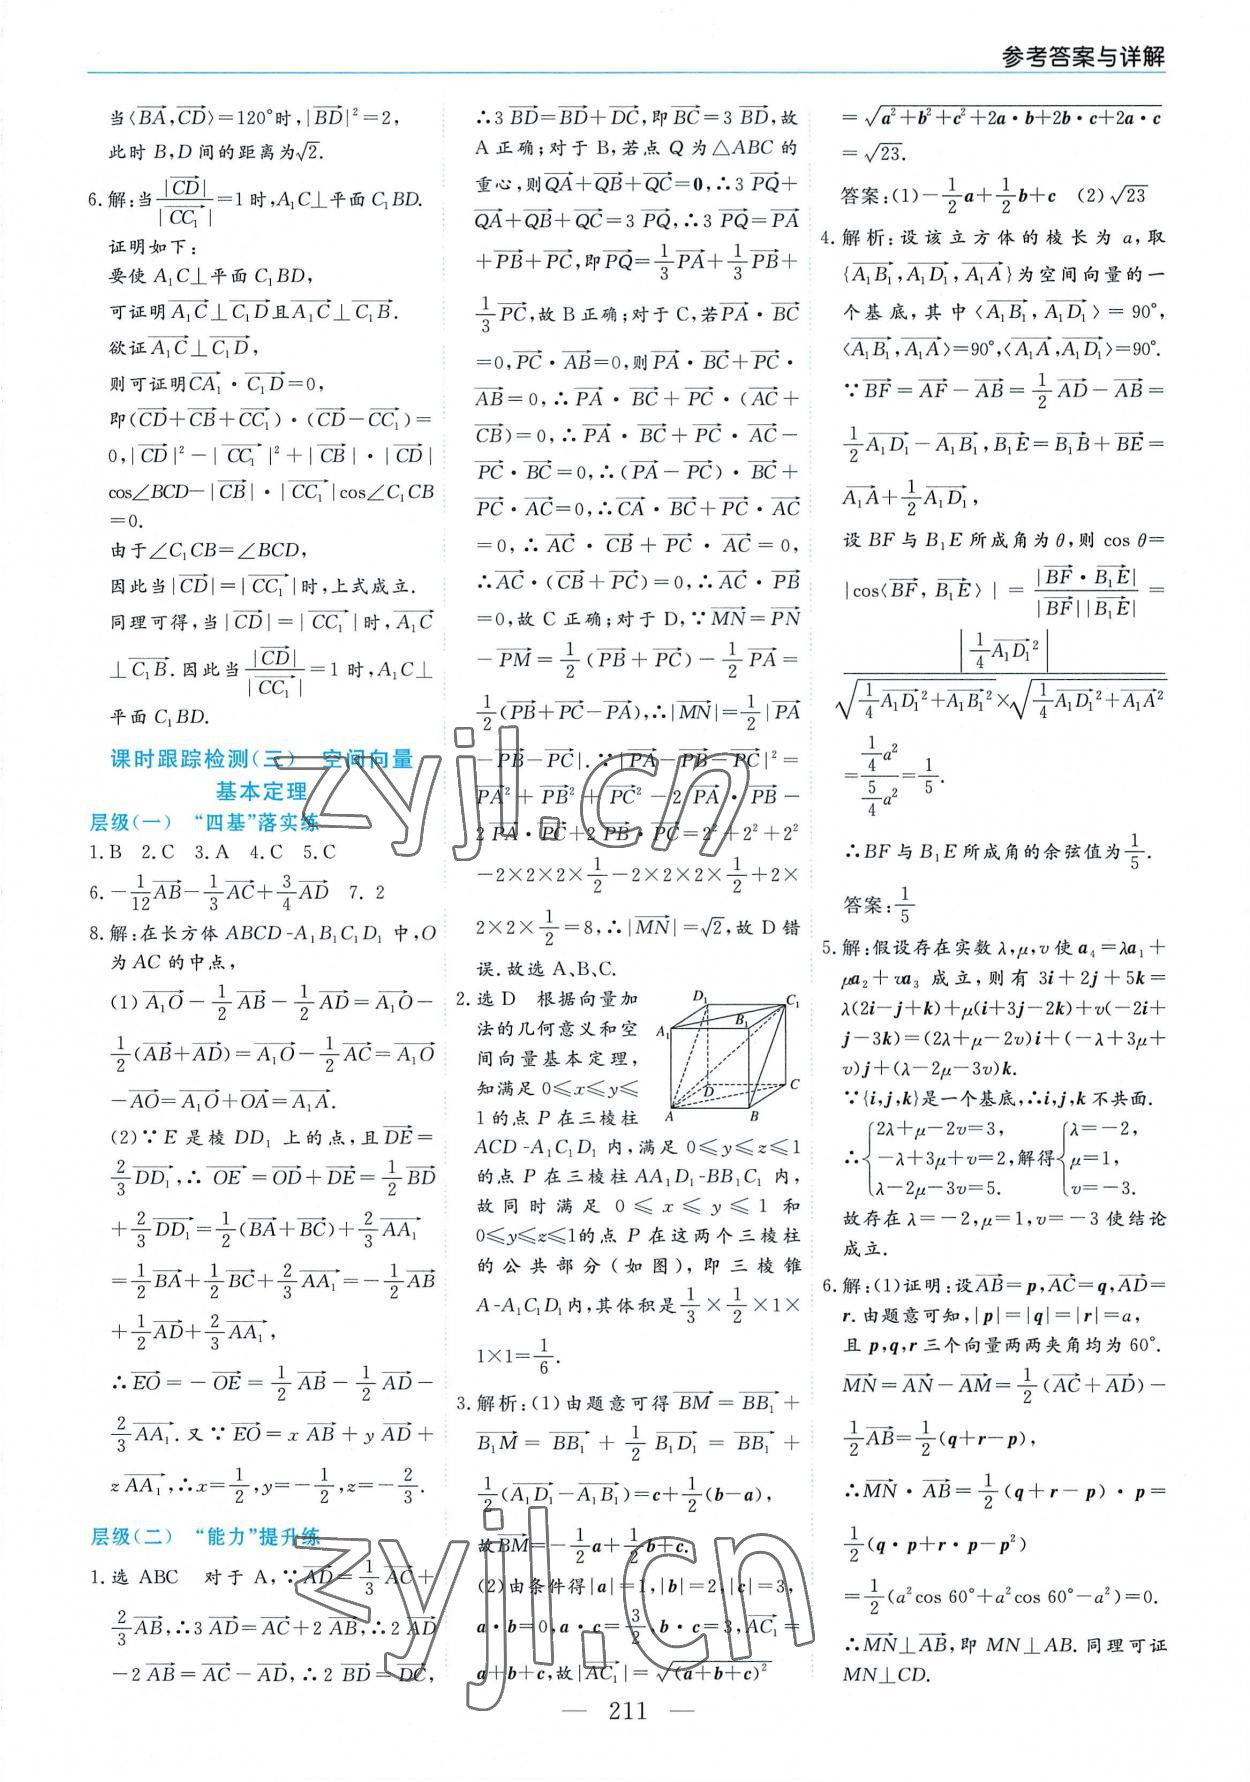 参考答案与详解
当⟨BA,CD⟩=120°时,|BD|²=2,
此时 B,D 间的距离为√2.
6.解:当|CD|/|CC₁|=1时,A₁C⊥平面 C₁BD.
证明如下:
要使 A₁C⊥平面 C₁BD,
可证明A₁C⊥C₁D且A₁C⊥C₁B.
欲证A₁C⊥C₁D,
则可证明CA₁·C₁D=0,
即(CD+CB+CC₁)·(CD-CC₁)=
0,|CD|²-|CC₁|²+|CB|·|CD|
cos∠BCD-|CB|·|CC₁|cos∠C₁CB
=0.
由于∠C₁CB=∠BCD,
因此当|CD|=|CC₁|时,上式成立.
同理可得,当|CD|=|CC₁|时,A₁C
⊥C₁B.因此当|CD|/|CC₁|=1 时,A₁C⊥
平面 C₁BD.
课时跟踪检测(三) 空间向量
基本定理
层级(一) “四基”落实练
1.B 2.C 3.A 4.C 5.C
6.-1/12AB-1/3AC+3/4AD 7.2
8.解:在长方体 ABCD-A₁B₁C₁D₁ 中,O
为 AC 的中点,
(1)A₁O-1/2AB-1/2AD=A₁O-
1/2(AB+AD)=A₁O-1/2AC=A₁O
-AO=A₁O+OA=A₁A.
(2)∵E 是棱 DD₁ 上的点,且DE=
2/3DD₁,∴OE=OD+DE=1/2BD
+2/3DD₁=1/2(BA+BC)+2/3AA₁
=1/2BA+1/2BC+2/3AA₁=-1/2AB
+1/2AD+2/3AA₁,
∴EO=-OE=1/2AB-1/2AD-
2/3AA₁.又∵EO=xAB+yAD+
zAA₁,∴x=1/2,y=-1/2,z=-2/3.
层级(二) “能力”提升练
1.选 ABC 对于 A,∵AD=1/3AC+
2/3AB,∴3AD=AC+2AB,∴2AD
-2AB=AC-AD,∴2BD=DC,
∴3BD=BD+DC,即BC=3BD,故
A 正确;对于 B,若点 Q 为△ABC 的
重心,则QA+QB+QC=0,∴3PQ+
QA+QB+QC=3PQ,∴3PQ=PA
+PB+PC,即PQ=1/3PA+1/3PB+
1/3PC,故 B 正确;对于 C,若PA·BC
=0,PC·AB=0,则PA·BC+PC·
AB=0,∴PA·BC+PC·(AC+
CB)=0,∴PA·BC+PC·AC-
PC·BC=0,∴(PA-PC)·BC+
PC·AC=0,∴CA·BC+PC·AC
=0,∴AC·CB+PC·AC=0,
∴AC·(CB+PC)=0,∴AC·PB
=0,故 C 正确;对于 D,∵MN=PN
-PM=1/2(PB+PC)-1/2PA=
1/2(PB+PC-PA),∴|MN|=1/2|PA
-PB-PC|.∵|PA-PB-PC|²=
PA²+PB²+PC²-2PA·PB-
2PA·PC+2PB·PC=2²+2²+2²
-2×2×2×1/2-2×2×2×1/2+2×
2×2×1/2=8,∴|MN|=√2,故 D 错
误.故选 A、B、C.
2.选 D 根据向量加
法的几何意义和空
间向量基本定理,
知满足 0≤x≤y≤
1的点 P 在三棱柱
D₁ C₁ A₁ B₁ D C A B
ACD-A₁C₁D₁ 内,满足 0≤y≤z≤1
的点 P 在三棱柱 AA₁D₁-BB₁C₁ 内,
故同时满足 0≤x≤y≤1 和
0≤y≤z≤1的点 P 在这两个三棱柱
的公共部分(如图),即三棱锥
A-A₁C₁D₁内,其体积是1/3×1/2×1×
1×1=1/6.
3.解析:(1)由题意可得BM=BB₁+
B₁M=BB₁+1/2B₁D₁=BB₁+
1/2(A₁D₁-A₁B₁)=c+1/2(b-a),
故BM=-1/2a+1/2b+c.
(2)由条件得|a|=1,|b|=2,|c|=3,
a·b=0,a·c=3/2,b·c=3,AC₁=
a+b+c,故|AC₁|=√(a+b+c)²
=√a²+b²+c²+2a·b+2b·c+2a·c
=√23.
答案:(1)-1/2a+1/2b+c (2)√23
4.解析:设该立方体的棱长为 a,取
{A₁B₁,A₁D₁,A₁A}为空间向量的一
个基底,其中⟨A₁B₁,A₁D₁⟩=90°,
⟨A₁B₁,A₁A⟩=90°,⟨A₁A,A₁D₁⟩=90°.
∵BF=AF-AB=1/2AD-AB=
1/2A₁D₁-A₁B₁,B₁E=B₁B+BE=
A₁A+1/2A₁D₁,
设 BF 与 B₁E 所成角为θ,则 cos θ=
|cos⟨BF,B₁E⟩|=|BF·B₁E|/|BF||B₁E|
=|1/4A₁D₁²|/(√(1/4A₁D₁²+A₁B₁²)×√(1/4A₁D₁²+A₁A²))
=(1/4a²)/(5/4a²)=1/5.
∴BF 与 B₁E 所成角的余弦值为1/5.
答案:1/5
5.解:假设存在实数λ,μ,υ使 a₄=λa₁+
μa₂+υa₃ 成立,则有 3i+2j+5k=
λ(2i-j+k)+μ(i+3j-2k)+υ(-2i+
j-3k)=(2λ+μ-2υ)i+(-λ+3μ+
υ)j+(λ-2μ-3υ)k.
∵{i,j,k}是一个基底,∴i,j,k 不共面.
∴{2λ+μ-2υ=3, -λ+3μ+υ=2, λ-2μ-3υ=5. 解得{λ=-2, μ=1, υ=-3.
故存在λ=-2,μ=1,υ=-3 使结论
成立.
6.解:(1)证明:设AB=p,AC=q,AD=
r.由题意可知,|p|=|q|=|r|=a,
且 p,q,r 三个向量两两夹角均为 60°.
MN=AN-AM=1/2(AC+AD)-
1/2AB=1/2(q+r-p),
∴MN·AB=1/2(q+r-p)·p=
1/2(q·p+r·p-p²)
=1/2(a²cos 60°+a²cos 60°-a²)=0.
∴MN⊥AB,即 MN⊥AB.同理可证
MN⊥CD.
— 211 —
zyjl.cn
zyjl.cn